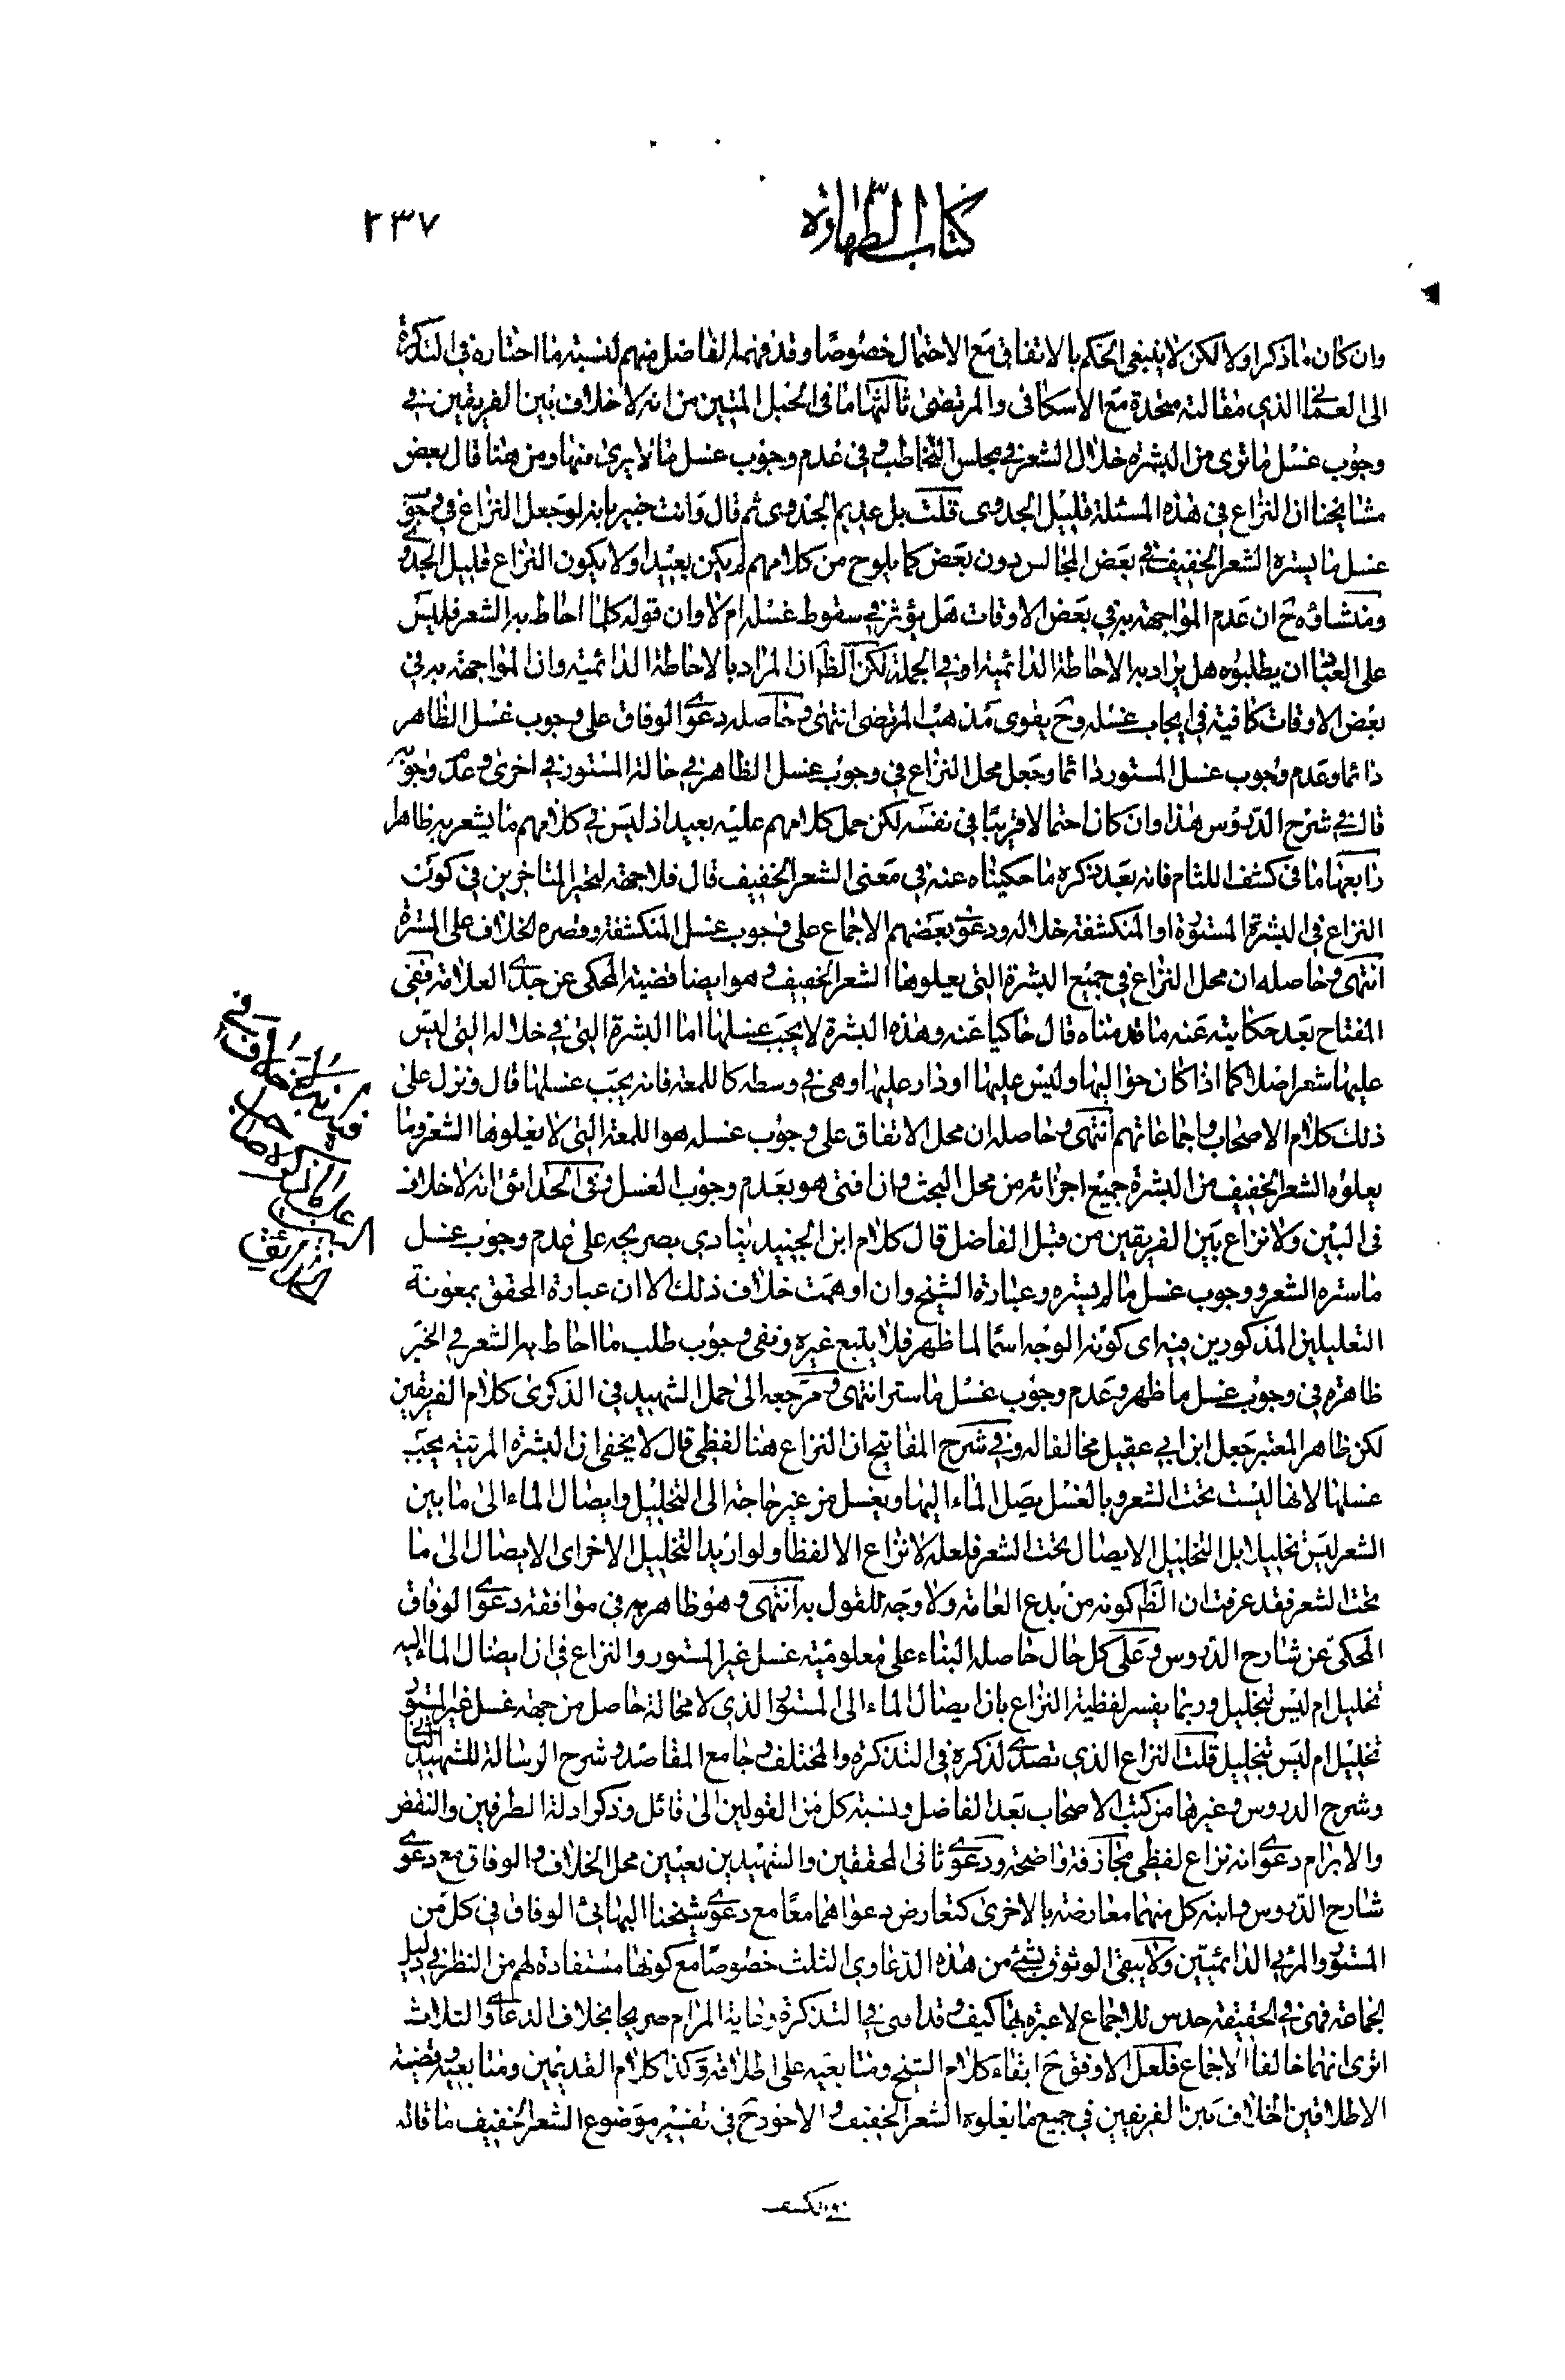 كتاب الطهارة
٢٣٧
وان كان ما ذكر اولا لكن لا ينبغي الحكم بالاتفاق مع الاحتمال خصوصا وقد فهم الفاضل منهم لنسبته ما اختاره في التذكرة
الى العماني الذي مقالته متحدة مع الاسكافى والمرتضى ثالثها ما فى الحبل المتين من انه لا خلاف بين الفريقين في
وجوب غسل ما ترى من البشرة خلال الشعر في مجلس التخاطب وفي عدم وجوب غسل ما لا يرى منها ومن هنا قال بعض
مشايخنا ان النزاع في هذه المسئلة قليل الجدوى قلت بل عديم الجدوى ثم قال وانت خبير بانه لو جعل النزاع في وجوب
غسل ما يستره الشعر الخفيف في بعض المجالس دون بعض كما يلوح من كلامهم لم يكن بعيدا ولا يكون النزاع قليل الجدوى
ومنشاؤه ح ان عدم المواجهة به في بعض الاوقات هل يؤثر في سقوط غسله ام لا وان قوله كلما احاط به الشعر فليس
على العباد ان يطلبوه هل يراد به الاحاطة الدائمية او في الجملة لكن الظ ان المراد بالاحاطة الدائمية وان المواجهة به في
بعض الاوقات كافية في ايجاب غسله وح يقوى مذهب المرتضى انتهى وحاصله دعوى الوفاق على وجوب غسل الظاهر
دائما وعدم وجوب غسل المستور دائما وجعل محل النزاع في وجوب غسل الظاهر في حالة المستور في اخرى وعدم وجوبه
قال في شرح الدروس هذا وان كان احتمالا قريبا في نفسه لكن حمل كلامهم عليه بعيد اذ ليس في كلامهم ما يشعر به ظاهرا
رابعها ما فى كشف اللثام فانه بعد ذكره ما حكيناه عنه في معنى الشعر الخفيف قال فلا جهة لتحير المتاخرين في كون
النزاع في البشرة المستورة او المنكشفة خلاله ودعوى بعضهم الاجماع على وجوب غسل المنكشفة وقصره الخلاف على المستورة
انتهى وحاصله ان محل النزاع في جميع البشرة التي يعلوها الشعر الخفيف وهو ايضا قضية المحكي عن جدي العلامة ففي
المفتاح بعد حكايته عنه ما قدمناه قال حاكيا عنه وهذه البشرة لا يجب غسلها اما البشرة التي في خلاله التي ليس
عليها شعر اصلا كما اذا كان حواليها وليس عليها او دار عليها وهي في وسطه كاللمعة فانه يجب غسلها قال ونزل على
ذلك كلام الاصحاب واجماعاتهم انتهى وحاصله ان محل الاتفاق على وجوب غسله هو اللمعة التي لا يعلوها الشعر وما
يعلوه الشعر الخفيف من البشرة جميع اجزائه من محل البحث وان افتى هو بعدم وجوب الغسل وفي الحدائق انه لا خلاف
في البين ولا نزاع بين الفريقين من قبل الفاضل قال كلام ابن الجنيد ينادي بصريحه على عدم وجوب غسل
ما ستره الشعر ووجوب غسل ما لم يستره وعبارة الشيخ وان اوهمت خلاف ذلك الا ان عبارة المحقق بمعونة
التعليلين المذكورين فيه اى كون الوجه اسما لما ظهر فلا يتبع غيره ونفى وجوب طلب ما احاط به الشعر في الخبر
ظاهرة في وجوب غسل ما ظهر وعدم وجوب غسل ما ستر انتهى ومرجعه الى حمل الشهيد في الذكرى كلام الفريقين
لكن ظاهر المعتبر جعل ابن ابي عقيل مخالفا له وفي شرح المفاتيح ان النزاع هنا لفظي قال لا يخفى ان البشرة المرئية يجب
غسلها لانها ليست تحت الشعر وبالغسل يصل الماء اليها ويغسل من غير حاجة الى التخليل وايصال الماء الى ما بين
الشعر ليس تخليلا بل التخليل الايصال تحت الشعر فلعله لا نزاع الا لفظا ولو اريد التخليل الاخر اى الايصال الى ما
تحت الشعر فقد عرفت ان الظ كونه من بدع العامة ولا وجه للقول به انتهى وهو ظاهر في موافقة دعوى الوفاق
المحكي عن شارح الدروس وعلى كل حال حاصله البناء على معلومية غسل غير المستور والنزاع في ان ايصال الماء اليه
تخليل ام ليس تخليل وربما يفسر لفظية النزاع بان ايصال الماء الى المستور الذي لا محالة حاصل من جهة غسل غير المستور
تخليل ام ليس تخليل قلت النزاع الذي تصدى لذكره في التذكرة والمختلف وجامع المقاصد وشرح الرسالة للشهيد الثاني
وشرح الدروس وغيرها من كتب الاصحاب بعد الفاضل ونسبة كل من القولين الى قائل وذكر ادلة الطرفين والنقض
والابرام دعوى انه نزاع لفظي مجازفة واضحة ودعوى ثاني المحققين والشهيدين تعيين محل الخلاف والوفاق مع دعوى
شارح الدروس وابنه كل منهما معارضة بالاخرى كتعارض دعواهما معا مع دعوى شيخنا البهائي الوفاق في كل من
المستور والمرئي الدائميين ولا يبقى الوثوق بشئ من هذه الدعاوي الثلث خصوصا مع كونها مستفادة لهم من النظر في دليل
الجماعة فهي في الحقيقة حدس للاجماع لا عبرة بها كيف وقد امضى في التذكرة وغاية المرام صريحا بخلاف الدعاوى الثلاث
اترى انهما خالفا الاجماع فلعل الاوفق ح ابقاء كلام الشيخ ومتابعيه على اطلاقه وكذا كلام القديمين ومتابعيه وقضية
الاطلاقين الخلاف بين الفريقين في جميع ما يعلوه الشعر الخفيف والاجود ح في تفسير موضوع الشعر الخفيف ما قاله